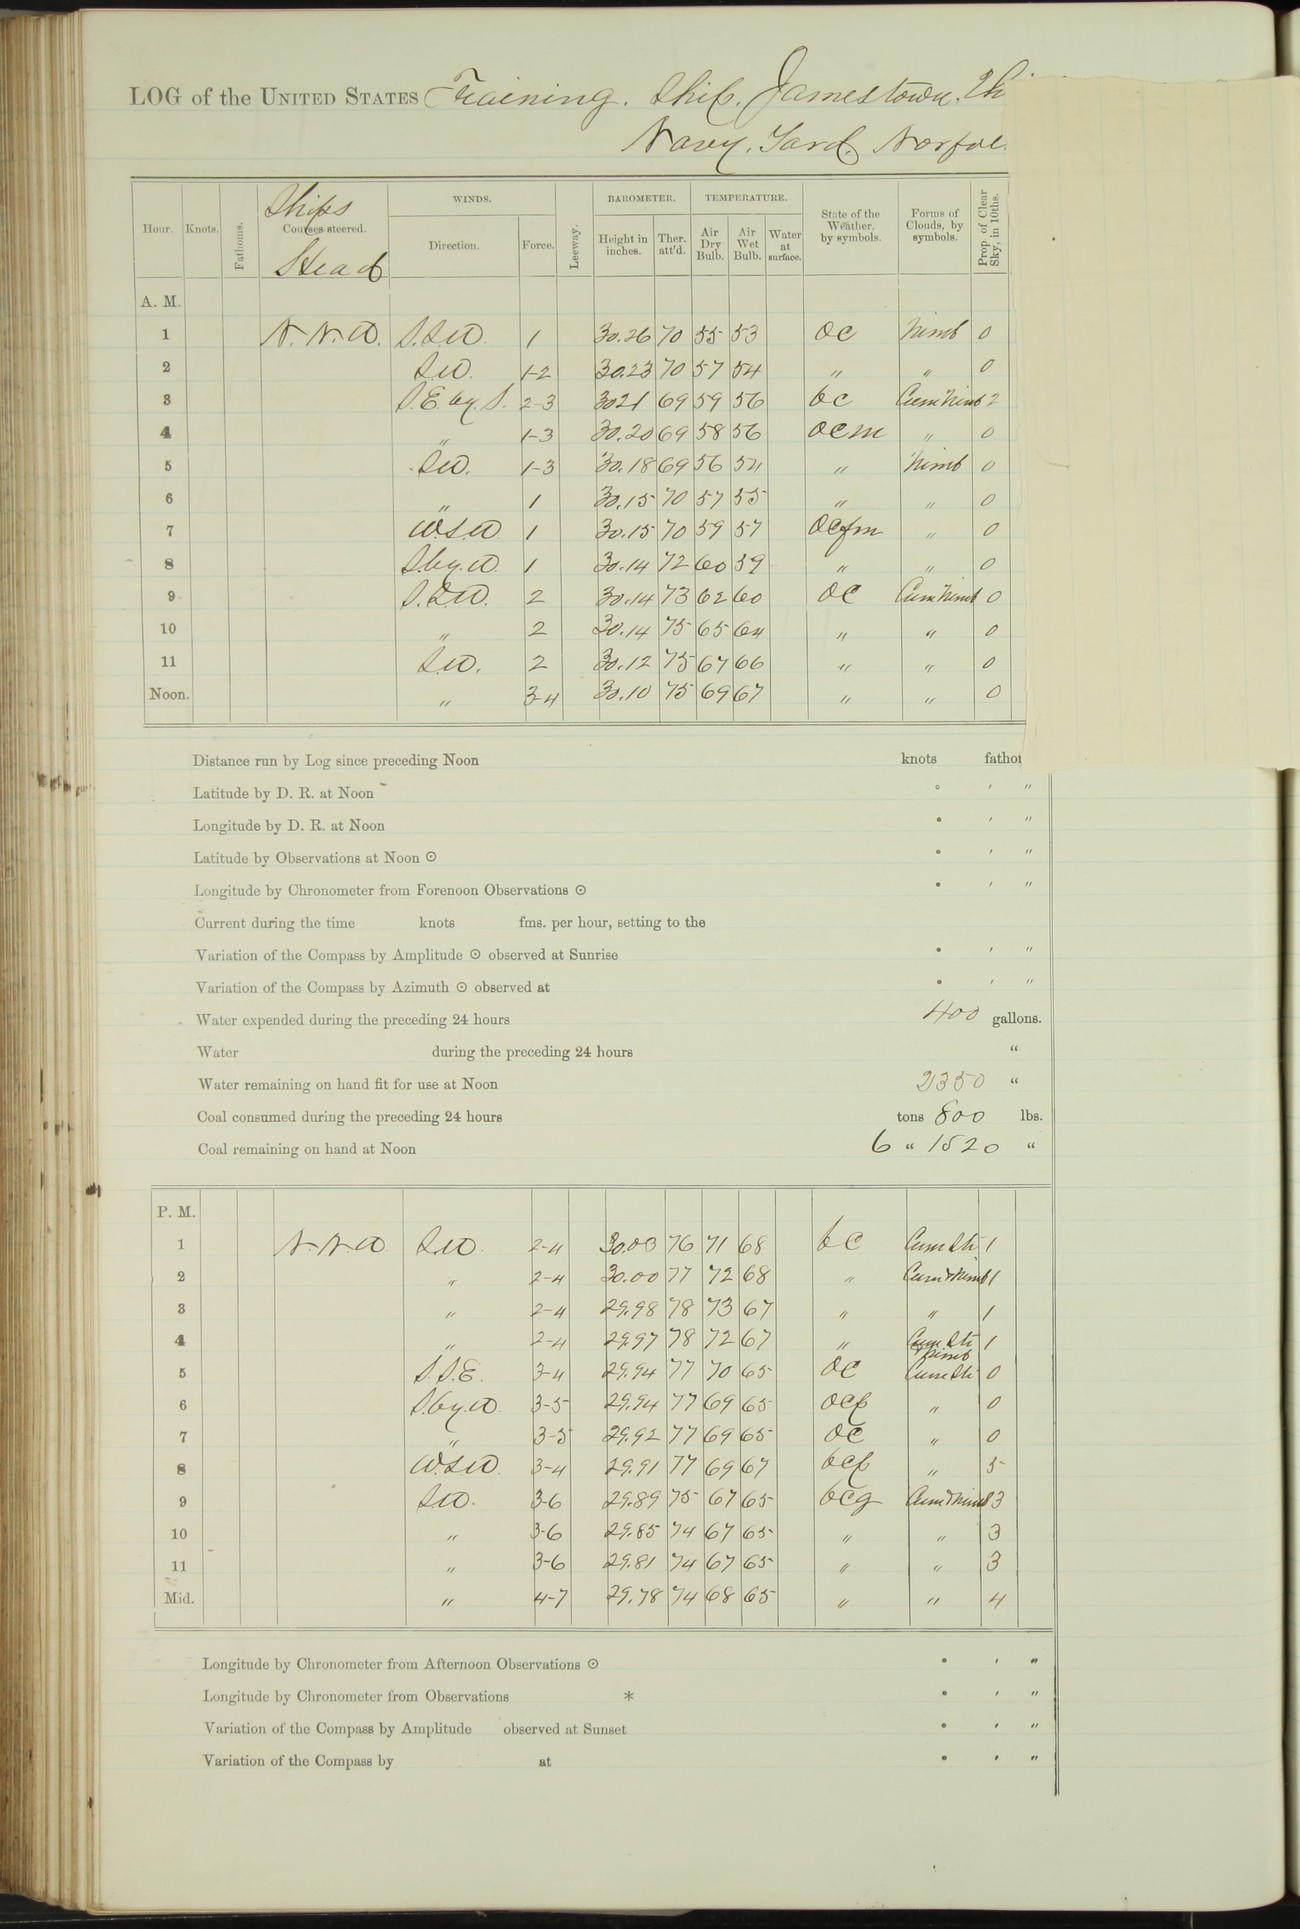 LOG of the UNITED STATES Training. Ship. Jamestown.
Navy. Yard. Norfol
Hour. Knots. Fathoms. Ships Courses steered. Head WINDS. Direction. Force. Leeway. BAROMETER. Height in inches. Ther. att'd. TEMPERATURE. Air Dry Bulb. Air Wet Bulb. Water at surface. State of the Weather. by symbols. Forms of Clouds, by symbols. Prop. of Clear Sky, in 10ths.
A. M.
1 N.N.W. S.S.W. 1 30.26 70 55 53 oc Nimb 0
2 S.W. 1-2 30.23 70 57 54 " " 0
3 S.E. by. S. 2-3 3021 69 59 56 bc Cum Nimb 2
4 " 1-3 30.20 69 58 56 ocm " 0
5 S.W. 1-3 30.18 69 56 54 " Nimb 0
6 " 1 30.15 70 57 55 " " 0
7 W.S.W. 1 30.15 70 59 57 ocfm " 0
8 S. by. W. 1 30.14 72 60 59 " " 0
9 S.S.W. 2 30.14 73 62 60 oc Cum Nimb 0
10 " 2 30.14 75 65 64 " " 0
11 S.W. 2 30.12 75 67 66 " " 0
Noon. " 3-4 30.10 75 69 67 " " 0
Distance run by Log since preceding Noon knots
Latitude by D. R. at Noon ° ′ ″
Longitude by D. R. at Noon ° ′ ″
Latitude by Observations at Noon ⊙ ° ′ ″
Longitude by Chronometer from Forenoon Observations ⊙ ° ′ ″
Current during the time knots fms. per hour, setting to the
Variation of the Compass by Amplitude ⊙ observed at Sunrise ° ′ ″
Variation of the Compass by Azimuth ⊙ observed at ° ′ ″
Water expended during the preceding 24 hours 400 gallons.
Water during the preceding 24 hours "
Water remaining on hand fit for use at Noon 2350 "
Coal consumed during the preceding 24 hours tons 800 lbs.
Coal remaining on hand at Noon 6 " 1520 "
P. M.
1 N.N.W. S.W. 2-4 30.03 76 71 68 bc Cum Str 1
2 " 2-4 30.00 77 72 68 " Cum Nimb 1
3 " 2-4 29.98 78 73 67 " " 1
4 " 2-4 29.97 78 72 67 " Cum Str Nimb 1
5 S.S.E. 3-4 29.94 77 70 65 oc Cum Str 0
6 S. by. W. 3-5 29.94 77 69 65 ocp " 0
7 " 3-5 29.92 77 69 65 oc " 0
8 W.S.W. 3-4 29.91 77 69 67 bcp " 5
9 S.W. 3-6 29.89 75 67 65 bcq Cum Nimb 3
10 " 3-6 29.85 74 67 65 " " 3
11 " 3-6 29.81 74 67 65 " " 3
Mid. " 4-7 29.78 74 68 65 " " 4
Longitude by Chronometer from Afternoon Observations ⊙ ° ′ ″
Longitude by Chronometer from Observations * ° ′ ″
Variation of the Compass by Amplitude observed at Sunset ° ′ ″
Variation of the Compass by at ° ′ ″